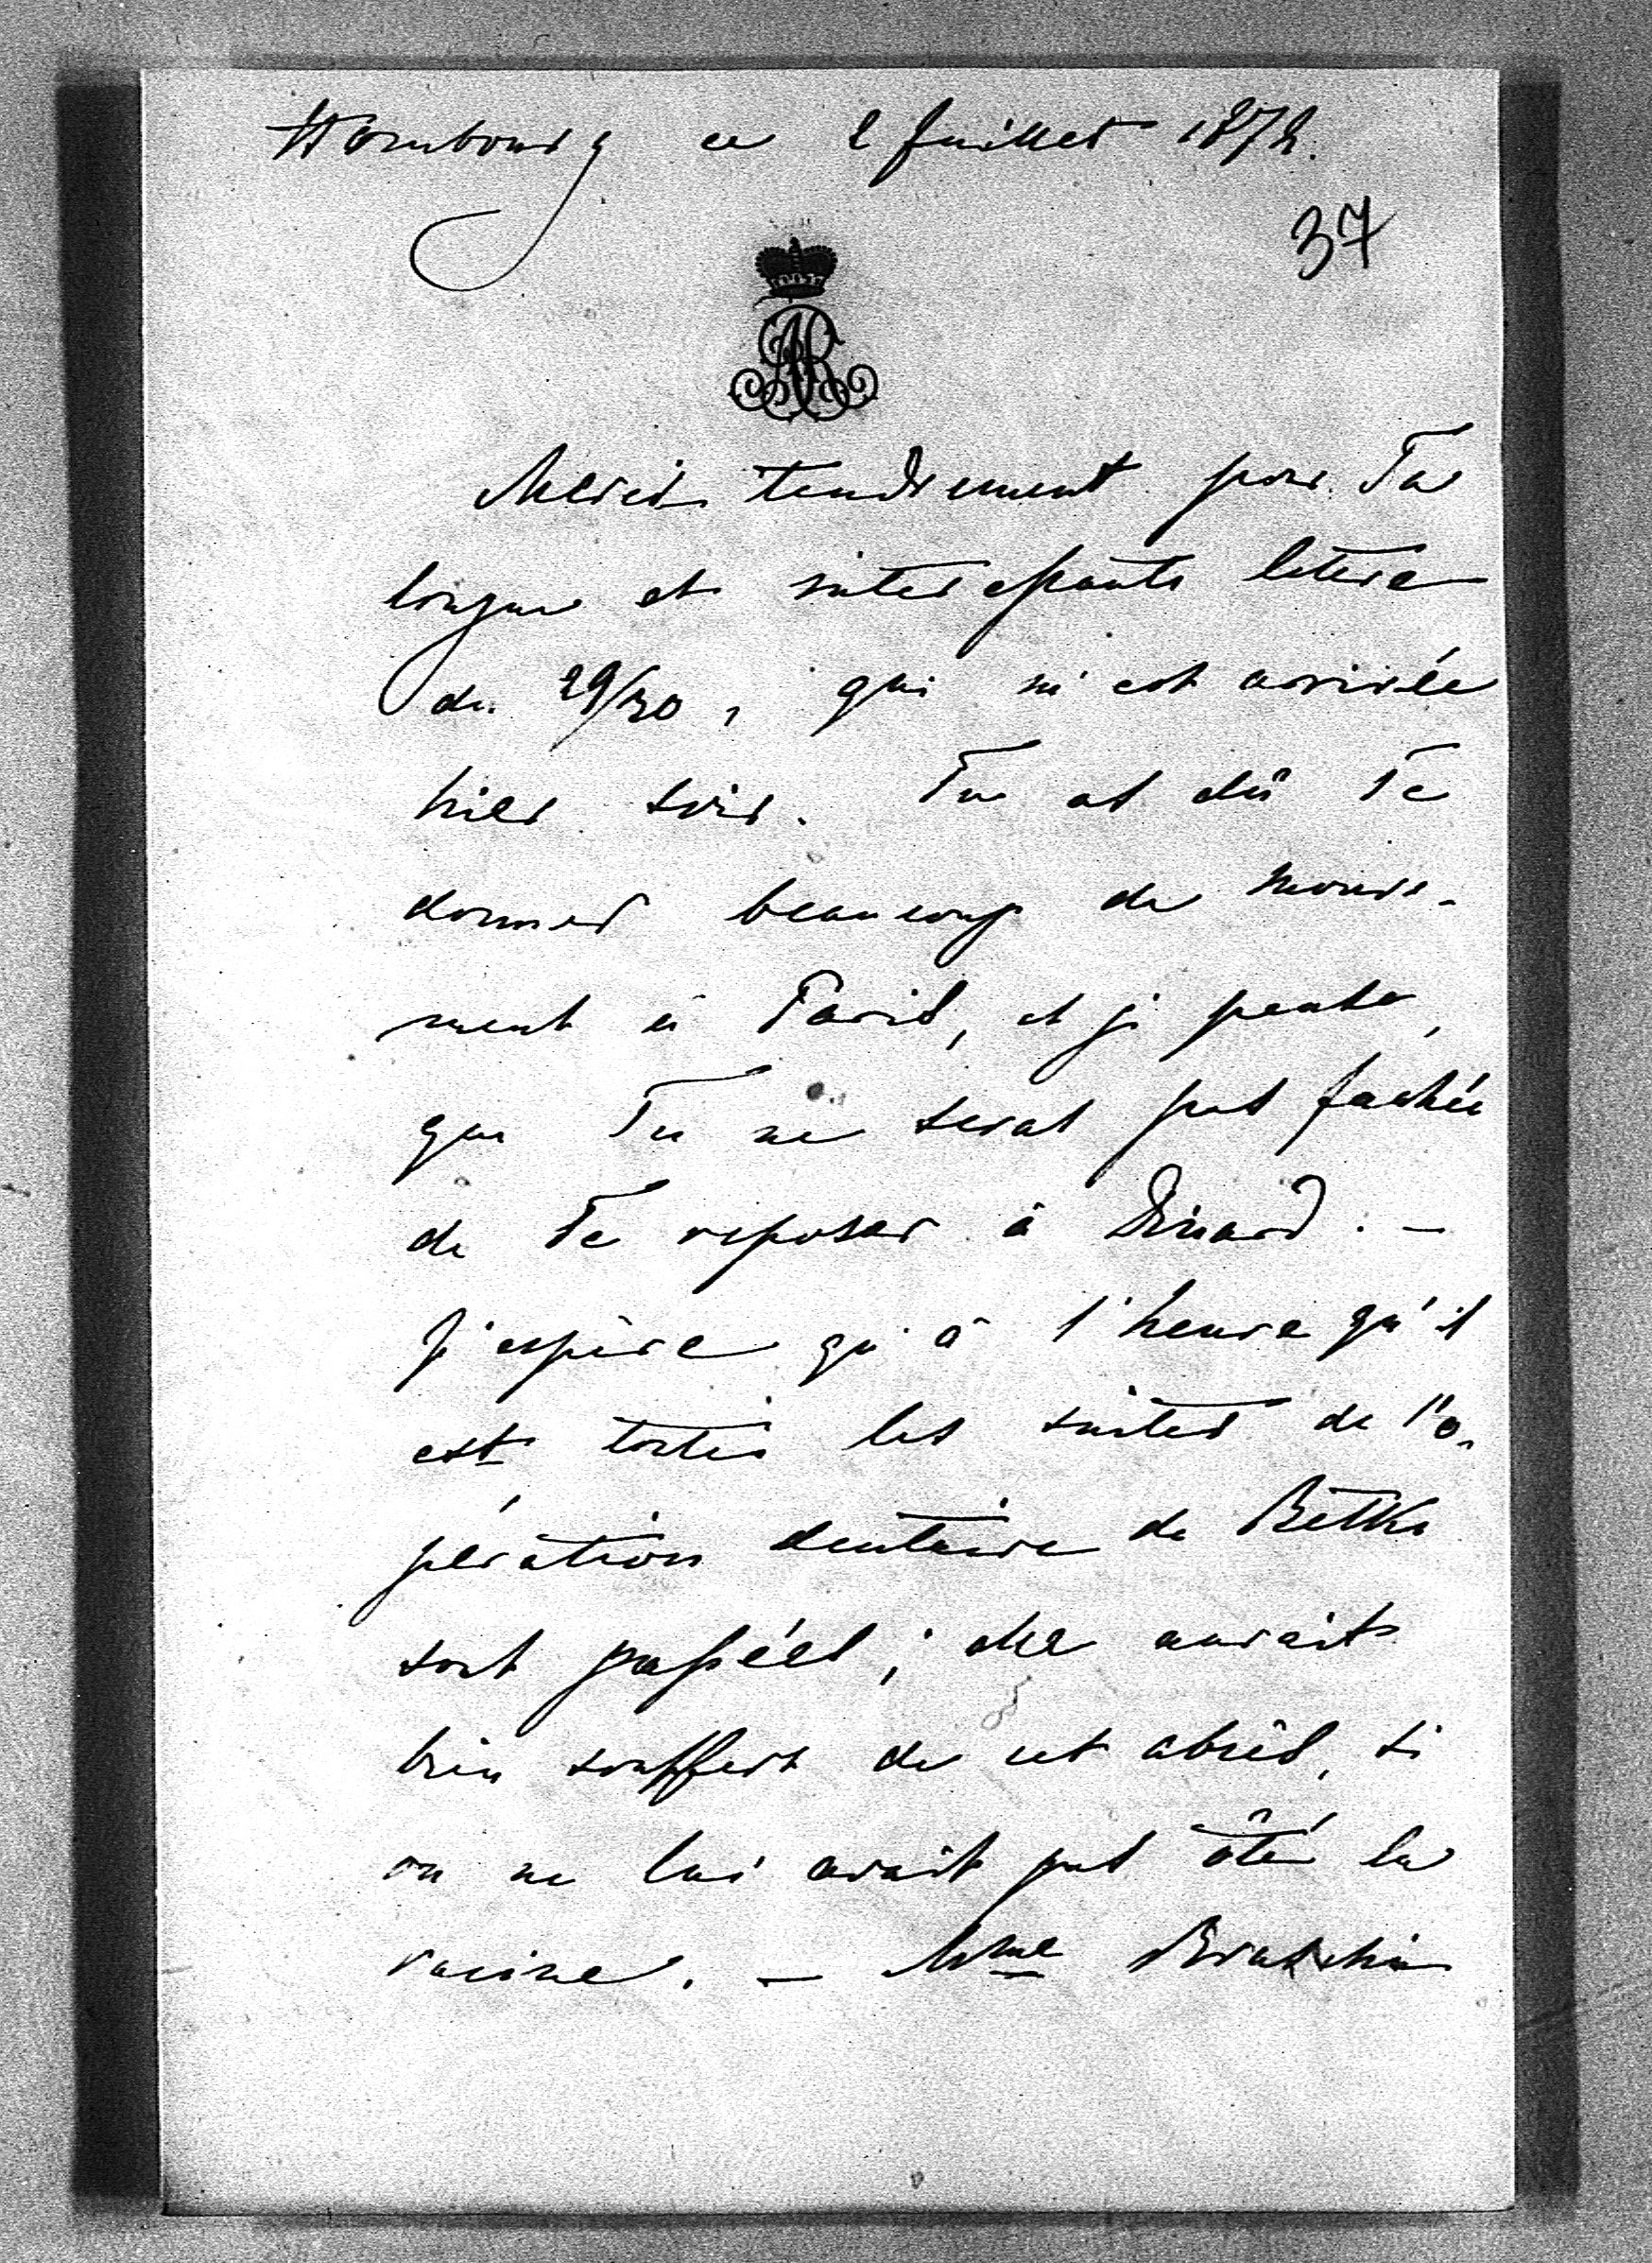 Hombourg ce 2 Juillet 1872.
37
Merci tendrement pour Ta
longue et interessante lettre
du 29/30, qui m'est arrivée
hier soir. Tu as dû Te
donner beaucoup de mouve-
ment à Paris, et je pense,
que Tu ne seras pas fachée
de Te reposer à Dinard. —
J'espère qu'à l'heure qu'il
est toutes les suites de l'o-
pération dentaire de Betka
sont passées; elle aurait
bien souffert de cet abcès, si
on ne lui avait pas ôté la
racine. — Mme